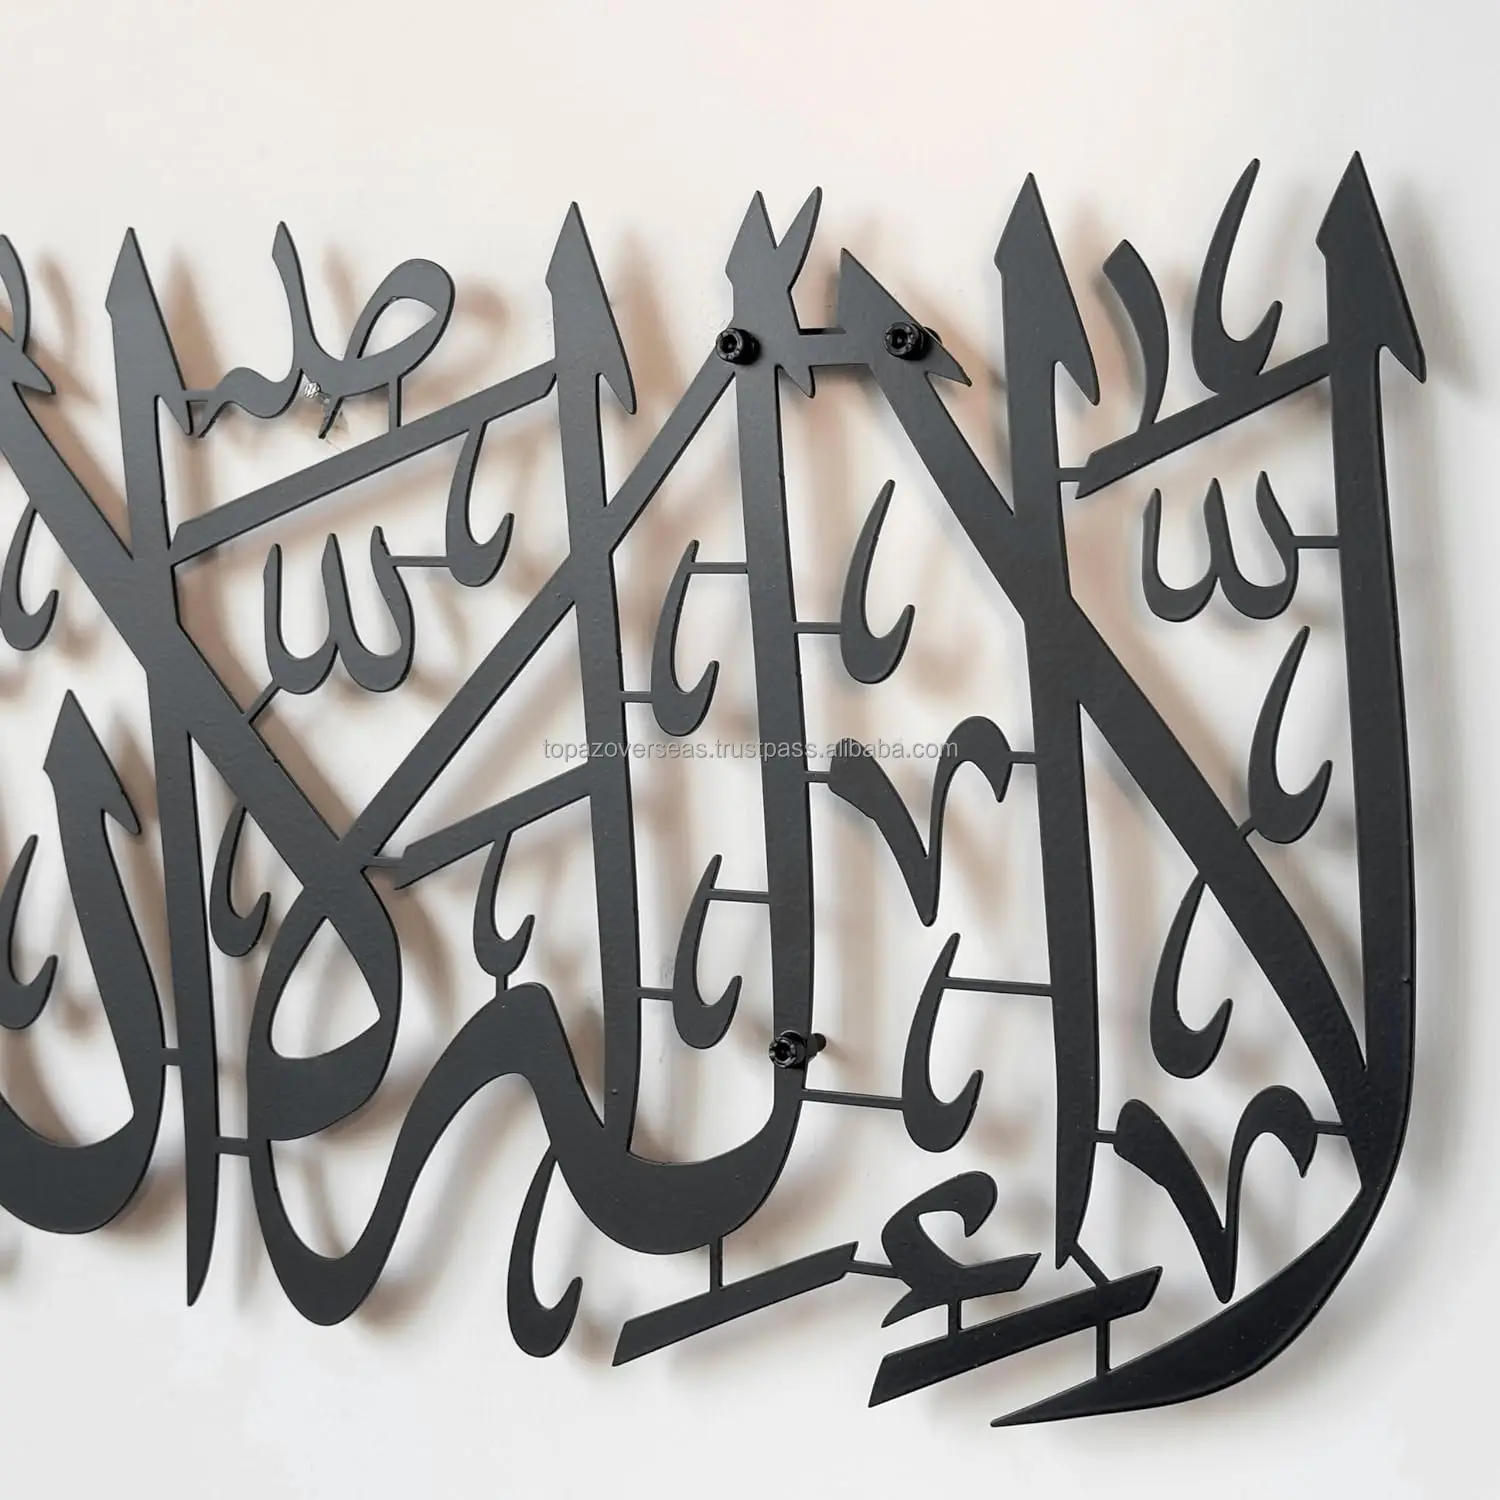 لا إله إلا
topazoverseas.trustpass.alibaba.com